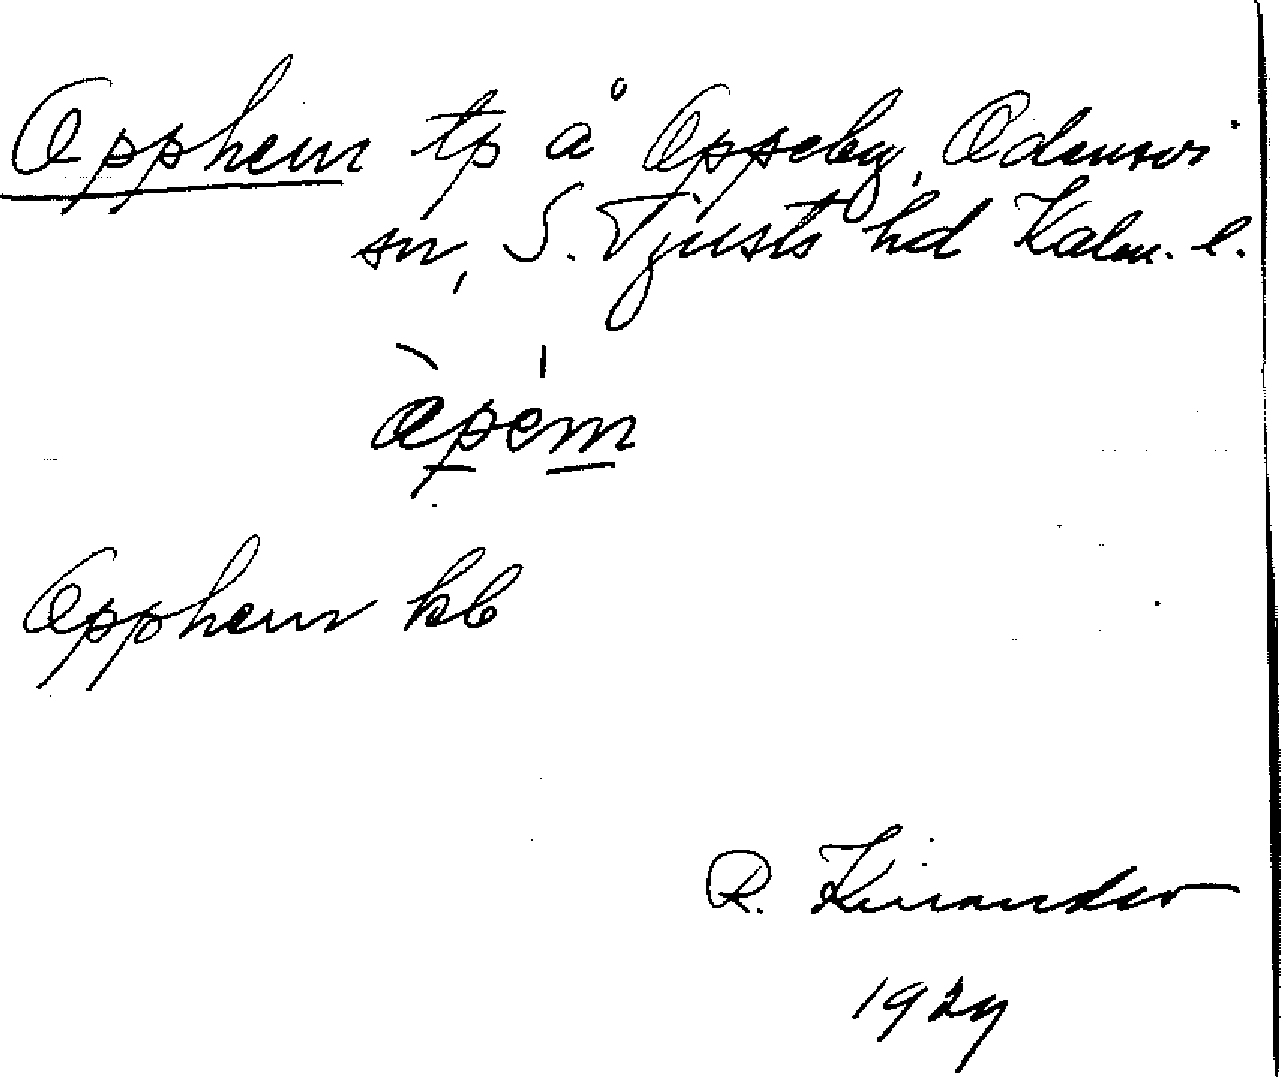 Opphem tp å Oppeby, Odensvi
sn, S. Tjusts hd Kalm. l.
Opphem kb
R. Kinander
1929